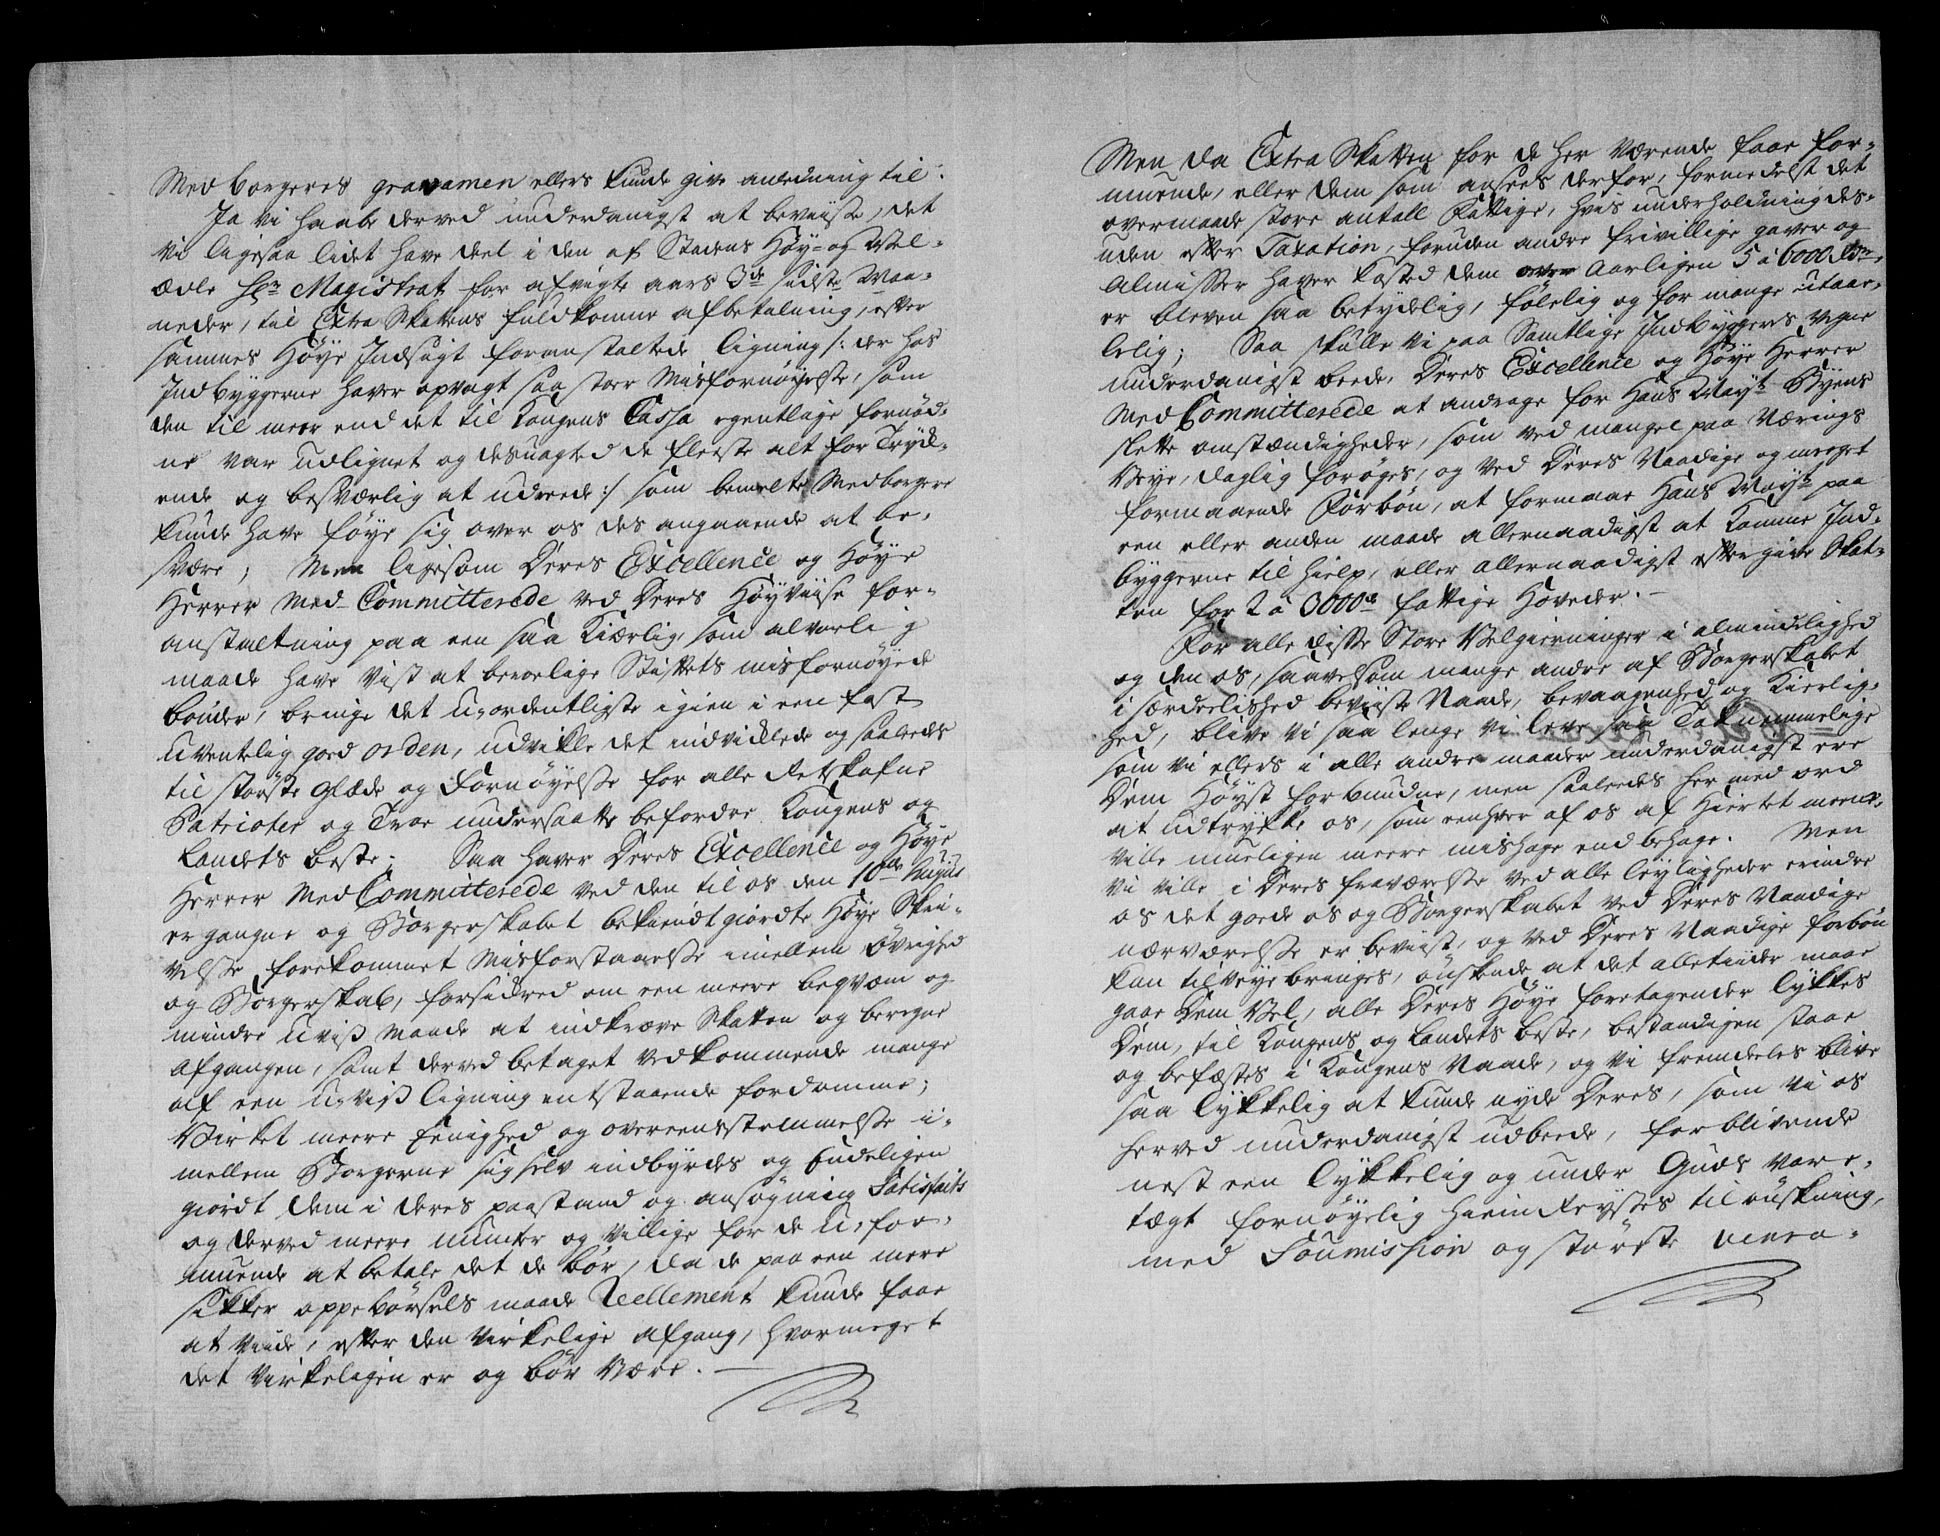 Medborgeres gravamen ellers kunde give anledning til:
Ja vi haabe derved underdanigst at beviise, det
vi ligesaa lidet have deel i den af Stadens Høy- og Vel-
ædle Hr. Magistrat for afvigte aars 3de sidste Maa-
neder, til Extra Skattens fuldkomne afbetalning, efter
sammes Høye Indsigt foranstaltede ligning /: der hos
Indbyggerne haver opvagt saa stoor Misfornøyelse, som
den til meer end det til Kongens Cassa egentlige fornød-
ne var udlignet og desuagted de fleeste alt for Tryk-
ende og besværlig at udreede :/ som bemelte Medborgere
kunde have føye sig over os des angaaende at be-
svære; Men ligesom Deres Excellence og Høye
Herrer Med-Committerede ved Deres Høyviise for-
anstaltning paa een saa Kiærlig, som alvorlig
maade have vist at beroelige Stiftets misfornøyede
bønder, bringe det U-ordentligste igien i een fast
uventelig goed orden, udvikle det indviklede og saaledes
til største Glæde og Fornøyelse for alle Retskafne
Patrioter og Troe undersaatte befordre Kongens og
Landets beste; Saa haver Deres Excellence og Høye
Herrer MedCommitterede ved den til os den 10de Augus
ergangne og Borgerskabet bekiendtgiordte Høye Skri-
velse forekommet Misforstaaelse imellem Øvrighed
og Borgerskab, forsikred om een meere beqvem og
mindre Uviß Maade at indkræve Skatten og beregne
Afgangen, samt derved betaget vedkommende mange
af een U-viß ligning entstaaende fordomme;
Virket meere Eenighed og overeensstemmelse i-
mellem Borgerne sig selv indbyrdes og Endeligen
giordt dem i deres paastand og ansøgning Satisfaits
og derved meere munter og villige for de U-for-
muende at betale det de bør, da de paa een mere
sikker oppebørsels maade Reellement kunde faae
at viide, efter den virkelige afgang, hvormeget
det virkeligen er og bør være. —
Men da Extra Skatten for de her værende faae for-
muende, eller dem som ansees derfor, formedelst det
overmaade store antall Fattige, hvis underholdning des-
uden efter Taxation, foruden andre frivillige gaver og
Almisser haver kosted dem over Aarligen 5 à 6000 Rdr.,
er bleven saa betydelig, følelig og for mange utaae-
lelig; Saa skulle vi paa Samtlige Indbyggeres Vegne
underdanigst beede, Deres Excellence og Høye Herrer
MedCommitterede at andrage for Hans Mayt. Byens
slette omstændigheder, som ved mangel paa Nærings
Veye, daglig forøges, og ved Deres Naadige og meeget
formaaende Forbøn, at formaae Hans Mayt. paa
een eller anden maade allernaadigst at komme Ind-
byggerne til hielp, eller allernaadigst eftergive Skat-
ten for 2 à 3000de fattige Hoveder. —
For alle disse Store Velgierninger i almindelighed
og den os, saavelsom mange andre af Borgerskabet
i særdeelished beviiste Naade, bevaagenhed og Kierlig-
hed, blive vi saa lenge vi leve saa Taknemmelige
som vi ellers i alle andre maader underdanigst ere
Dem Høyst forbundne, men saaledes her med ord
at udtrykke os, som eenhver af os af Hiertet meener,
ville mueligen meere mishage end behage. Men
vi ville i Deres fraværelse ved alle leyligheder erindre
os det goede os og Borgerskabet ved Deres Naadige
nærværelse er beviist, og ved Deres Naadige forbøn
kan tilveyebringes, ønskende at det alletiider maae
gaae Dem Vel, alle Deres Høye foretagender lykkes
Dem, til Kongens og Landets beste, bestandigen staae
og befæstes i Kongens Naade, og vi fremdeeles blive
saa lykkelig at kunde nyde Deres, som vi os
herved underdanigst udbeede, forblivende
nest een lykkelig og under Guds Vare-
tægt fornøyelig hiemReyses tilønskning,
med Soumission og største venera-